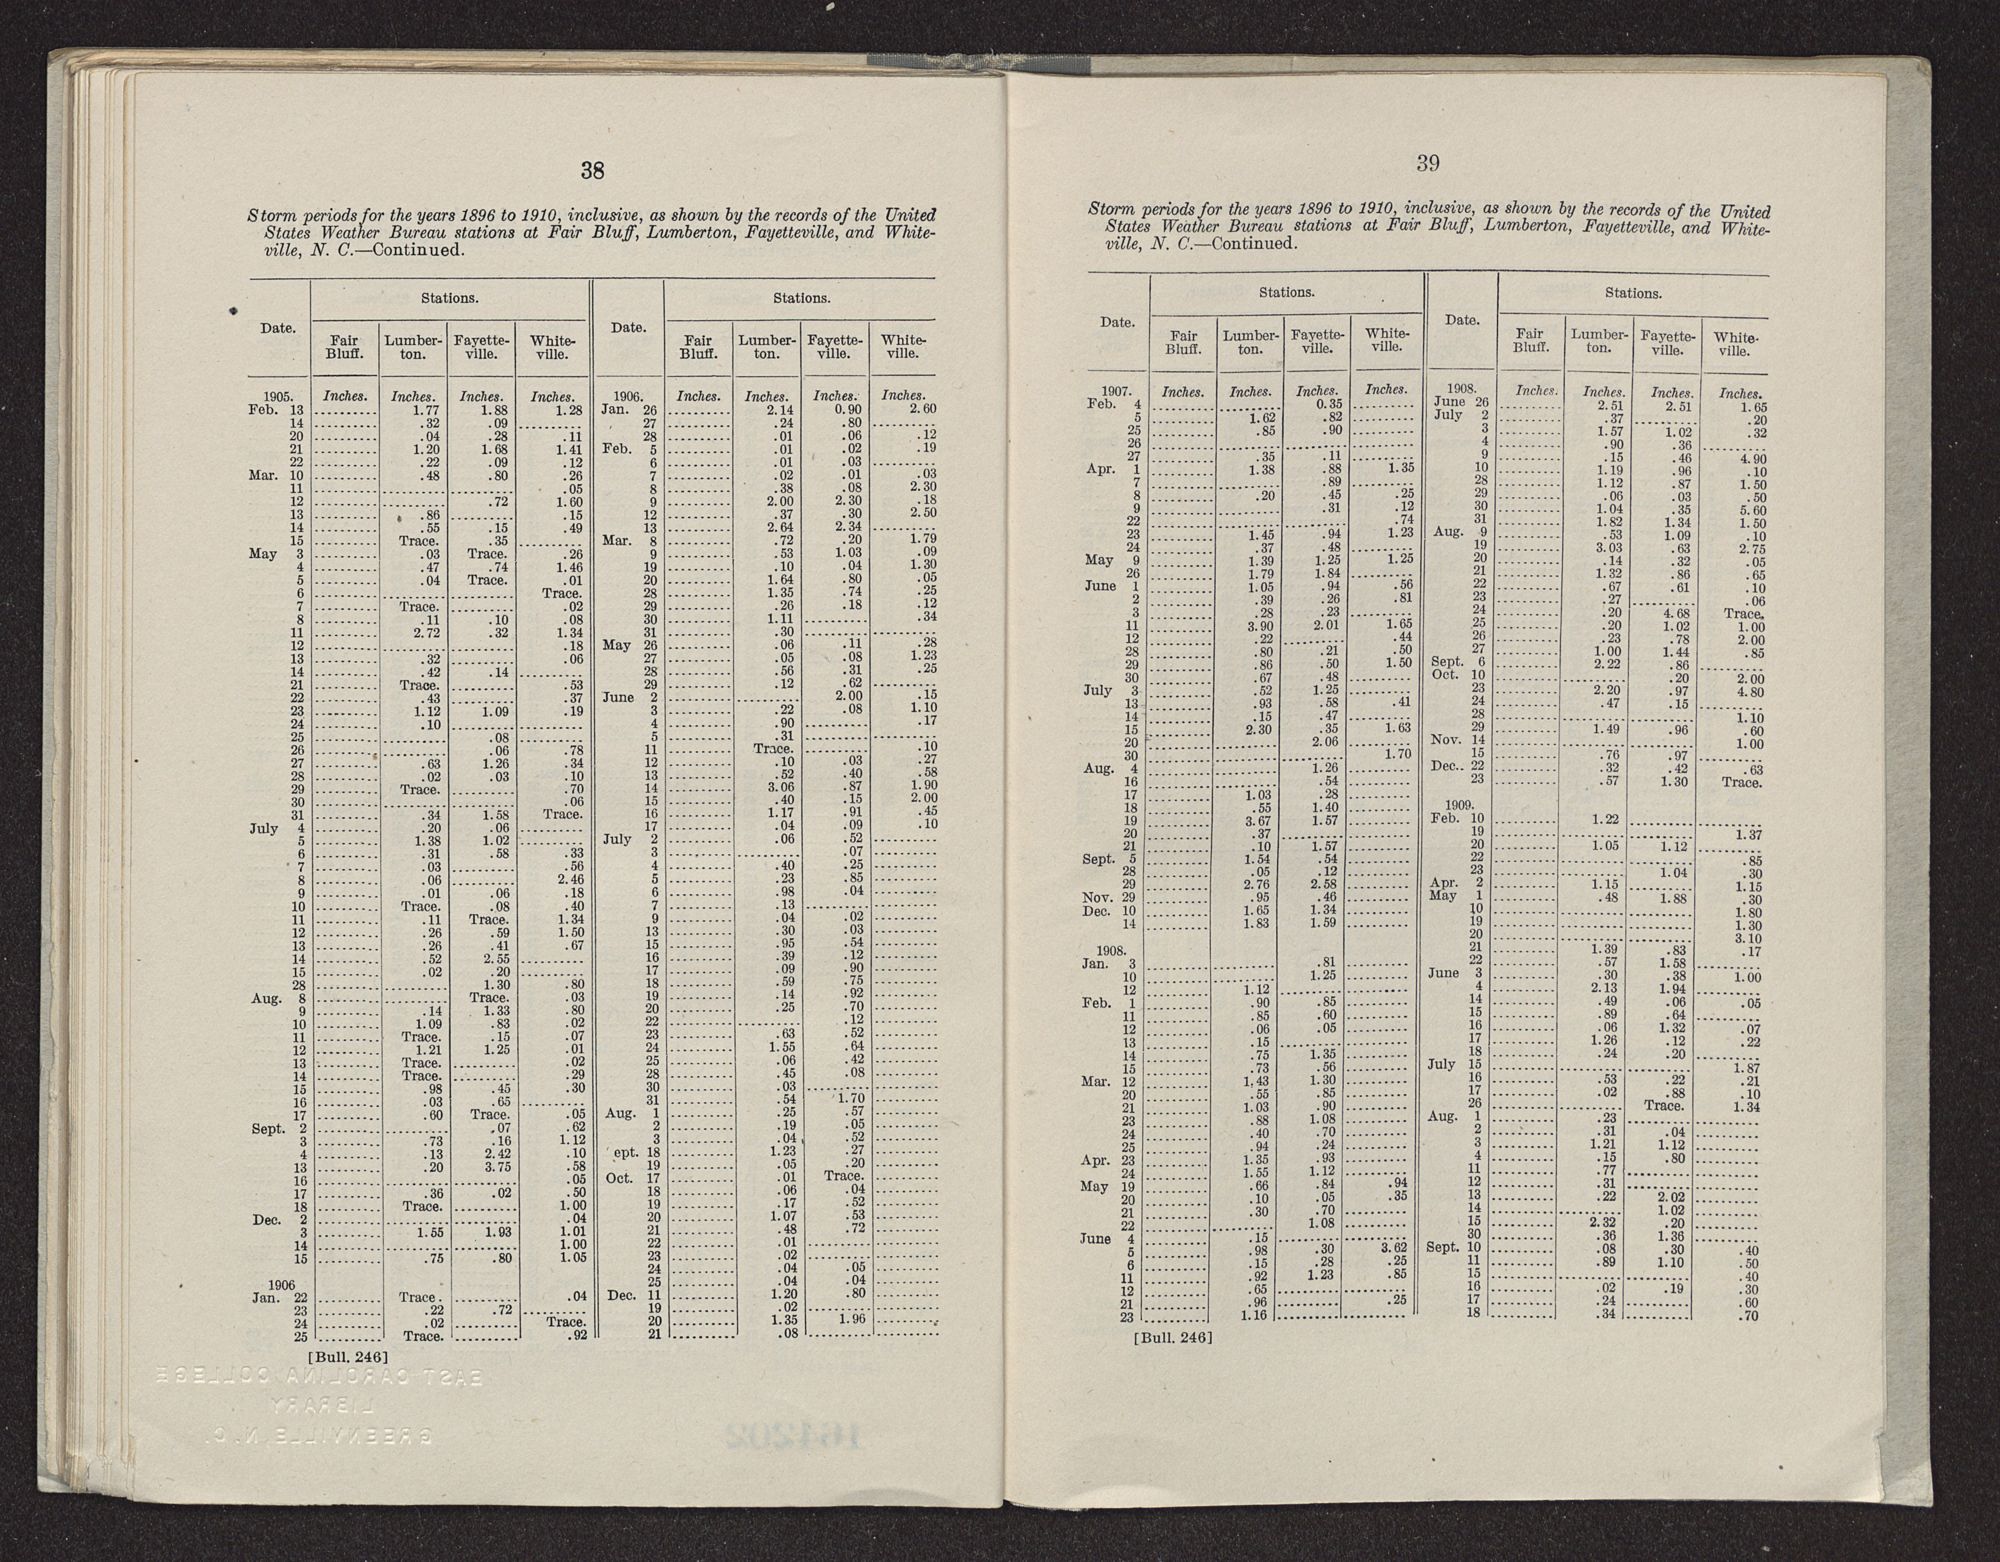 38
Storm periods for the years 1896 to 1910, inclusive, as shown by the records of the United
States Weather Bureau stations at Fair Bluff, Lumberton, Fayetteville, and White-
ville, N. C.—Continued.
Date. Stations.
Fair Bluff. Lumber-ton. Fayette-ville. White-ville.
1905. Inches. Inches. Inches. Inches.
Feb. 13 .... 1.77 1.88 1.28
14 .... .32 .09 ....
20 .... .04 .28 .11
21 .... 1.20 1.68 1.41
22 .... .22 .09 .12
Mar. 10 .... .48 .80 .26
11 .... .... .... .05
12 .... .... .72 1.60
13 .... .86 .... .15
14 .... .55 .15 .49
15 .... Trace. .35 ....
May 3 .... .03 Trace. .26
4 .... .47 .74 1.46
5 .... .04 Trace. .01
6 .... .... .... Trace.
7 .... Trace. .... .02
8 .... .11 .10 .08
11 .... 2.72 .32 1.34
12 .... .... .... .18
13 .... .32 .... .06
14 .... .42 .14 ....
21 .... Trace. .... .53
22 .... .43 .... .37
23 .... 1.12 1.09 .19
24 .... .10 .... ....
25 .... .... .08 ....
26 .... .... .06 .78
27 .... .63 1.26 .34
28 .... .02 .03 .10
29 .... Trace. .... .70
30 .... .... .... .06
31 .... .34 1.58 Trace.
July 4 .... .20 .06 ....
5 .... 1.38 1.02 ....
6 .... .31 .58 .33
7 .... .03 .... .56
8 .... .06 .... 2.46
9 .... .01 .06 .18
10 .... Trace. .08 .40
11 .... .11 Trace. 1.34
12 .... .26 .59 1.50
13 .... .26 .41 .67
14 .... .52 2.55 ....
15 .... .02 .20 ....
28 .... .... 1.30 .80
Aug. 8 .... .... Trace. .03
9 .... .14 1.33 .80
10 .... 1.09 .83 .02
11 .... Trace. .15 .07
12 .... 1.21 1.25 .01
13 .... Trace. .... .02
14 .... Trace. .... .29
15 .... .98 .45 .30
16 .... .03 .65 ....
17 .... .60 Trace. .05
Sept. 2 .... .... .07 .62
3 .... .73 .16 1.12
4 .... .13 2.42 .10
13 .... .20 3.75 .58
16 .... .... .... .05
17 .... .36 .02 .50
18 .... Trace. .... 1.00
Dec. 2 .... .... .... .04
3 .... 1.55 1.93 1.01
14 .... .... .... 1.00
15 .... .75 .80 1.05
1906
Jan. 22 .... Trace. .... .04
23 .... .22 .72 ....
24 .... .02 .... Trace.
25 .... Trace. .... .92
Date. Stations.
Fair Bluff. Lumber-ton. Fayette-ville. White-ville.
1906. Inches. Inches. Inches. Inches.
Jan. 26 .... 2.14 0.90 2.60
27 .... .24 .80 ....
28 .... .01 .06 .12
Feb. 5 .... .01 .02 .19
6 .... .01 .03 ....
7 .... .02 .01 .03
8 .... .38 .08 2.30
9 .... 2.00 2.30 .18
12 .... .37 .30 2.50
13 .... 2.64 2.34 ....
Mar. 8 .... .72 .20 1.79
9 .... .53 1.03 .09
19 .... .10 .04 1.30
20 .... 1.64 .80 .05
28 .... 1.35 .74 .25
29 .... .26 .18 .12
30 .... 1.11 .... .34
31 .... .30 .... ....
May 26 .... .06 .11 .28
27 .... .05 .08 1.23
28 .... .56 .31 .25
29 .... .12 .62 ....
June 2 .... .... 2.00 .15
3 .... .22 .08 1.10
4 .... .90 .... .17
5 .... .31 .... ....
11 .... Trace. .... .10
12 .... .10 .03 .27
13 .... .52 .40 .58
14 .... 3.06 .87 1.90
15 .... .40 .15 2.00
16 .... 1.17 .91 .45
17 .... .04 .09 .10
July 2 .... .06 .52 ....
3 .... .... .07 ....
4 .... .40 .25 ....
5 .... .23 .85 ....
6 .... .98 .04 ....
7 .... .13 .... ....
9 .... .04 .02 ....
13 .... .30 .03 ....
15 .... .95 .54 ....
16 .... .39 .12 ....
17 .... .09 .90 ....
18 .... .59 .75 ....
19 .... .14 .92 ....
20 .... .25 .70 ....
22 .... .... .12 ....
23 .... .63 .52 ....
24 .... 1.55 .64 ....
25 .... .06 .42 ....
28 .... .45 .08 ....
30 .... .03 .... ....
31 .... .54 1.70 ....
Aug. 1 .... .25 .57 ....
2 .... .19 .05 ....
3 .... .04 .52 ....
ept. 18 .... 1.23 .27 ....
19 .... .05 .20 ....
Oct. 17 .... .01 Trace. ....
18 .... .06 .04 ....
19 .... .17 .52 ....
20 .... 1.07 .53 ....
21 .... .48 .72 ....
22 .... .01 .... ....
23 .... .02 .... ....
24 .... .04 .05 ....
25 .... .04 .04 ....
Dec. 11 .... 1.20 .80 ....
19 .... .02 .... ....
20 .... 1.35 1.96 ....
21 .... .08 .... ....
[Bull. 246]
EAST CAROLINA COLLEGE
LIBRARY
GREENVILLE, N. C.
161202
39
Storm periods for the years 1896 to 1910, inclusive, as shown by the records of the United
States Weather Bureau stations at Fair Bluff, Lumberton, Fayetteville, and White-
ville, N. C.—Continued.
Date. Stations.
Fair Bluff. Lumber-ton. Fayette-ville. White-ville.
1907. Inches. Inches. Inches. Inches.
Feb. 4 .... .... 0.35 ....
5 .... 1.62 .82 ....
25 .... .85 .90 ....
26 .... .... .... ....
27 .... .35 .11 ....
Apr. 1 .... 1.38 .88 1.35
7 .... .... .89 ....
8 .... .20 .45 .25
9 .... .... .31 .12
22 .... .... .... .74
23 .... 1.45 .94 1.23
24 .... .37 .48 ....
May 9 .... 1.39 1.25 1.25
26 .... 1.79 1.84 ....
June 1 .... 1.05 .94 .56
2 .... .39 .26 .81
3 .... .28 .23 ....
11 .... 3.90 2.01 1.65
12 .... .22 .... .44
28 .... .80 .21 .50
29 .... .86 .50 1.50
30 .... .67 .48 ....
July 3 .... .52 1.25 ....
13 .... .93 .58 .41
14 .... .15 .47 ....
15 .... 2.30 .35 1.63
20 .... .... 2.06 ....
30 .... .... .... 1.70
Aug. 4 .... .... 1.26 ....
16 .... .... .54 ....
17 .... 1.03 .28 ....
18 .... .55 1.40 ....
19 .... 3.67 1.57 ....
20 .... .37 .... ....
21 .... .10 1.57 ....
Sept. 5 .... 1.54 .54 ....
28 .... .05 .12 ....
29 .... 2.76 2.58 ....
Nov. 29 .... .95 .46 ....
Dec. 10 .... 1.65 1.34 ....
14 .... 1.83 1.59 ....
1908.
Jan. 3 .... .... .81 ....
10 .... .... 1.25 ....
12 .... 1.12 .... ....
Feb. 1 .... .90 .85 ....
11 .... .85 .60 ....
12 .... .06 .05 ....
13 .... .15 .... ....
14 .... .75 1.35 ....
15 .... .73 .56 ....
Mar. 12 .... 1.43 1.30 ....
20 .... .55 .85 ....
21 .... 1.03 .90 ....
23 .... .88 1.08 ....
24 .... .40 .70 ....
25 .... .94 .24 ....
Apr. 23 .... 1.35 .93 ....
24 .... 1.55 1.12 ....
May 19 .... .66 .84 .94
20 .... .10 .05 .35
21 .... .30 .70 ....
22 .... .... 1.08 ....
June 4 .... .15 .... ....
5 .... .98 .30 3.62
6 .... .15 .28 .25
11 .... .92 1.23 .85
12 .... .65 .... ....
21 .... .96 .... .25
23 .... 1.16 .... ....
Date. Stations.
Fair Bluff. Lumber-ton. Fayette-ville. White-ville.
1908. Inches. Inches. Inches. Inches.
June 26 .... 2.51 2.51 1.65
July 2 .... .37 .... .20
3 .... 1.57 1.02 .32
4 .... .90 .36 ....
9 .... .15 .46 4.90
10 .... 1.19 .96 .10
28 .... 1.12 .87 1.50
29 .... .06 .03 .50
30 .... 1.04 .35 5.60
31 .... 1.82 1.34 1.50
Aug. 9 .... .53 1.09 .10
19 .... 3.03 .63 2.75
20 .... .14 .32 .05
21 .... 1.32 .86 .65
22 .... .67 .61 .10
23 .... .27 .... .06
24 .... .20 4.68 Trace.
25 .... .20 1.02 1.00
26 .... .23 .78 2.00
27 .... 1.00 1.44 .85
Sept. 6 .... 2.22 .86 ....
Oct. 10 .... .... .20 2.00
23 .... 2.20 .97 4.80
24 .... .47 .15 ....
28 .... .... .... 1.10
29 .... 1.49 .96 .60
Nov. 14 .... .... .... 1.00
15 .... .76 .97 ....
Dec.. 22 .... .32 .42 .63
23 .... .57 1.30 Trace.
1909.
Feb. 10 .... 1.22 .... ....
19 .... .... .... 1.37
20 .... 1.05 1.12 ....
22 .... .... .... .85
23 .... .... 1.04 .30
Apr. 2 .... 1.15 .... 1.15
May 1 .... .48 1.88 .30
10 .... .... .... 1.80
19 .... .... .... 1.30
20 .... .... .... 3.10
21 .... 1.39 .83 .17
22 .... .57 1.58 ....
June 3 .... .30 .38 1.00
4 .... 2.13 1.94 ....
14 .... .49 .06 .05
15 .... .89 .64 ....
16 .... .06 1.32 .07
17 .... 1.26 .12 .22
18 .... .24 .20 ....
July 15 .... .... .... 1.87
16 .... .53 .22 .21
17 .... .02 .88 .10
26 .... .... Trace. 1.34
Aug. 1 .... .23 .... ....
2 .... .31 .04 ....
3 .... 1.21 1.12 ....
4 .... .15 .80 ....
11 .... .77 .... ....
12 .... .31 .... ....
13 .... .22 2.02 ....
14 .... .... 1.02 ....
15 .... 2.32 .20 ....
30 .... .36 1.36 ....
Sept. 10 .... .08 .30 .40
11 .... .89 1.10 .50
15 .... .... .... .40
16 .... .02 .19 .30
17 .... .24 .... .60
18 .... .34 .... .70
[Bull. 246]